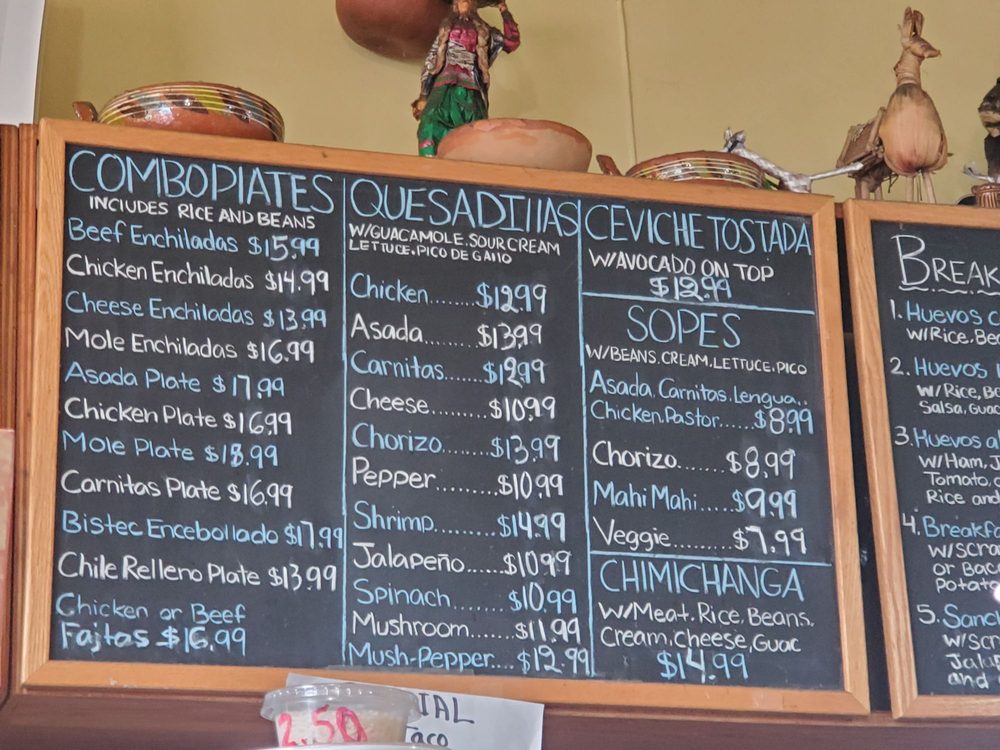 COMBO PLATES
INCLUDES RICE AND BEANS
Beef Enchiladas $15.99
Chicken Enchiladas $14.99
Cheese Enchiladas $13.99
Mole Enchiladas $16.99
Asada Plate $17.99
Chicken Plate $16.99
Mole Plate $18.99
Carnitas Plate $16.99
Bistec Encebollado $17.99
Chile Relleno Plate $13.99
Chicken or Beef
Fajitas $16.99
QUESADILLAS
W/GUACAMOLE, SOUR CREAM
LETTUCE, PICO DE GALLO
Chicken........$12.99
Asada $13.99
Carnitas......$12.99
Cheese.......$10.99
Chorizo.......$13.99
Pepper.........$10.99
Shrimp.........$14.99
Jalapeño......$10.99
Spinach.......$10.99
Mushroom.......$11.99
Mush-Pepper....$12.99
CEVICHE TOSTADA
W/AVOCADO ON TOP
$12.99
SOPES
W/BEANS, CREAM, LETTUCE, PICO
Asada, Carnitas, Lengua,.
Chicken, Pastor......$8.99
Chorizo.......$8.99
Mahi Mahi.....$9.99
Veggie.........$7.99
CHIMICHANGA
W/Meat, Rice, Beans,
Cream, Cheese, Guac
$14.99
BREAK
1. Huevos
W/Rice,
2. Huevos
W/Rice,
Salsa, Guac
3. Huevos al
W/Ham,
Tomato,
Rice and
4. Breakfa
W/Scra
or Bac
Potato
5. Sand
W/Scr
Jalap
and
IAL
Taco
2.50